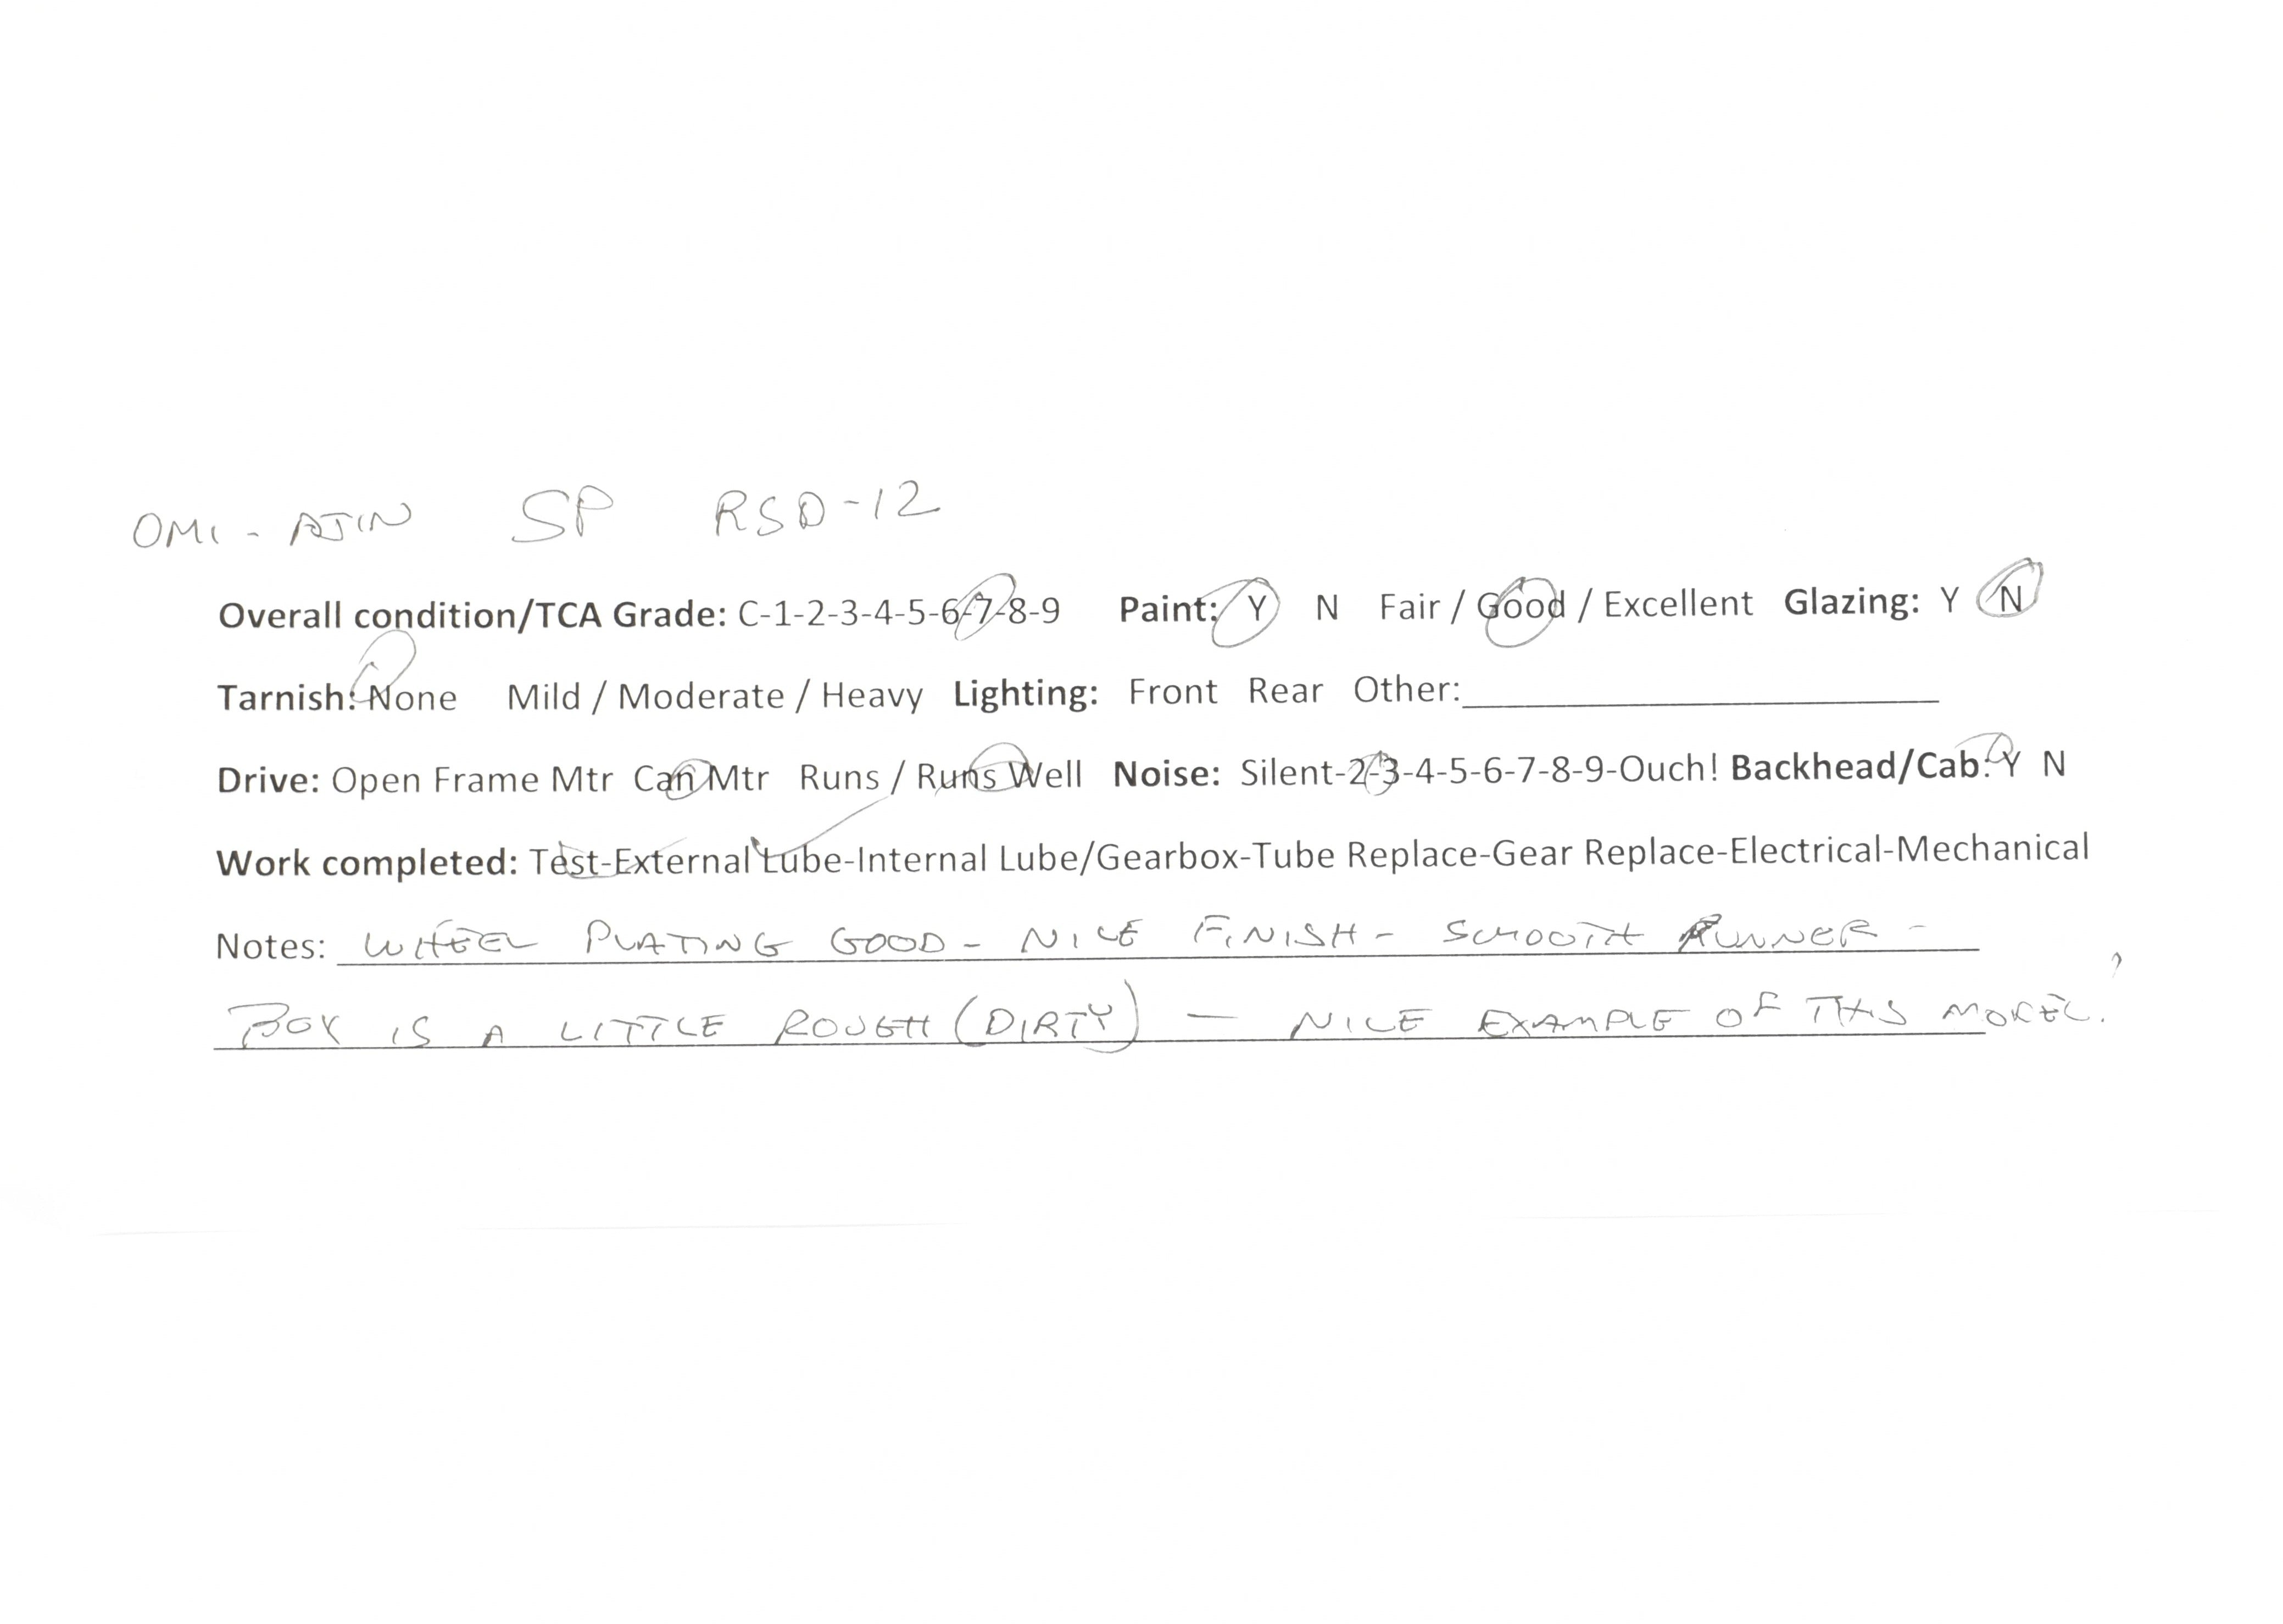 OMI - AJIN SP RSD-12
Overall condition/TCA Grade: C-1-2-3-4-5-6-7-8-9 Paint: Y N Fair / Good / Excellent Glazing: Y N
Tarnish: None Mild / Moderate / Heavy Lighting: Front Rear Other:
Drive: Open Frame Mtr Can Mtr Runs / Runs Well Noise: Silent-2-3-4-5-6-7-8-9-Ouch! Backhead/Cab: Y N
Work completed: Test-External Lube-Internal Lube/Gearbox-Tube Replace-Gear Replace-Electrical-Mechanical
Notes: WHEEL PLATING GOOD - NICE FINISH - SMOOTH RUNNER -
BOX IS A LITTLE ROUGH (DIRTY) — NICE EXAMPLE OF THIS MODEL.